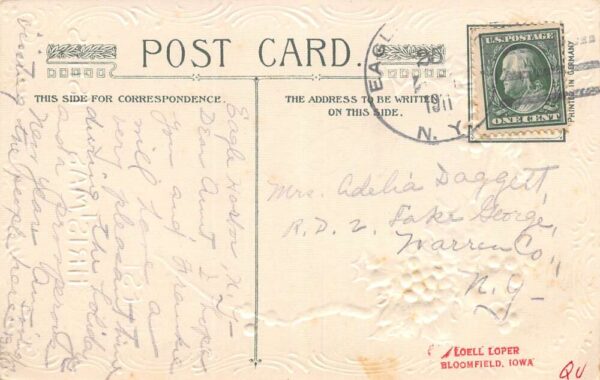 POST CARD.
THIS SIDE FOR CORRESPONDENCE.
THE ADDRESS TO BE WRITTEN
ON THIS SIDE.
EAGL
20
1911
N. Y.
U.S. POSTAGE
ONE CENT
PRINTED IN GERMANY
Eagle Harbor N.Y.
Dear Aunt I hope
you and Frankie
will have a
very pleasant time
during the holidays
and a prosperous
New Year. Am
visiting the people here
Mrs. Adelia Daggett,
R.D. 2, Lake George,
Warren Co.,
N.Y.
LOELL LOPER
BLOOMFIELD, IOWA